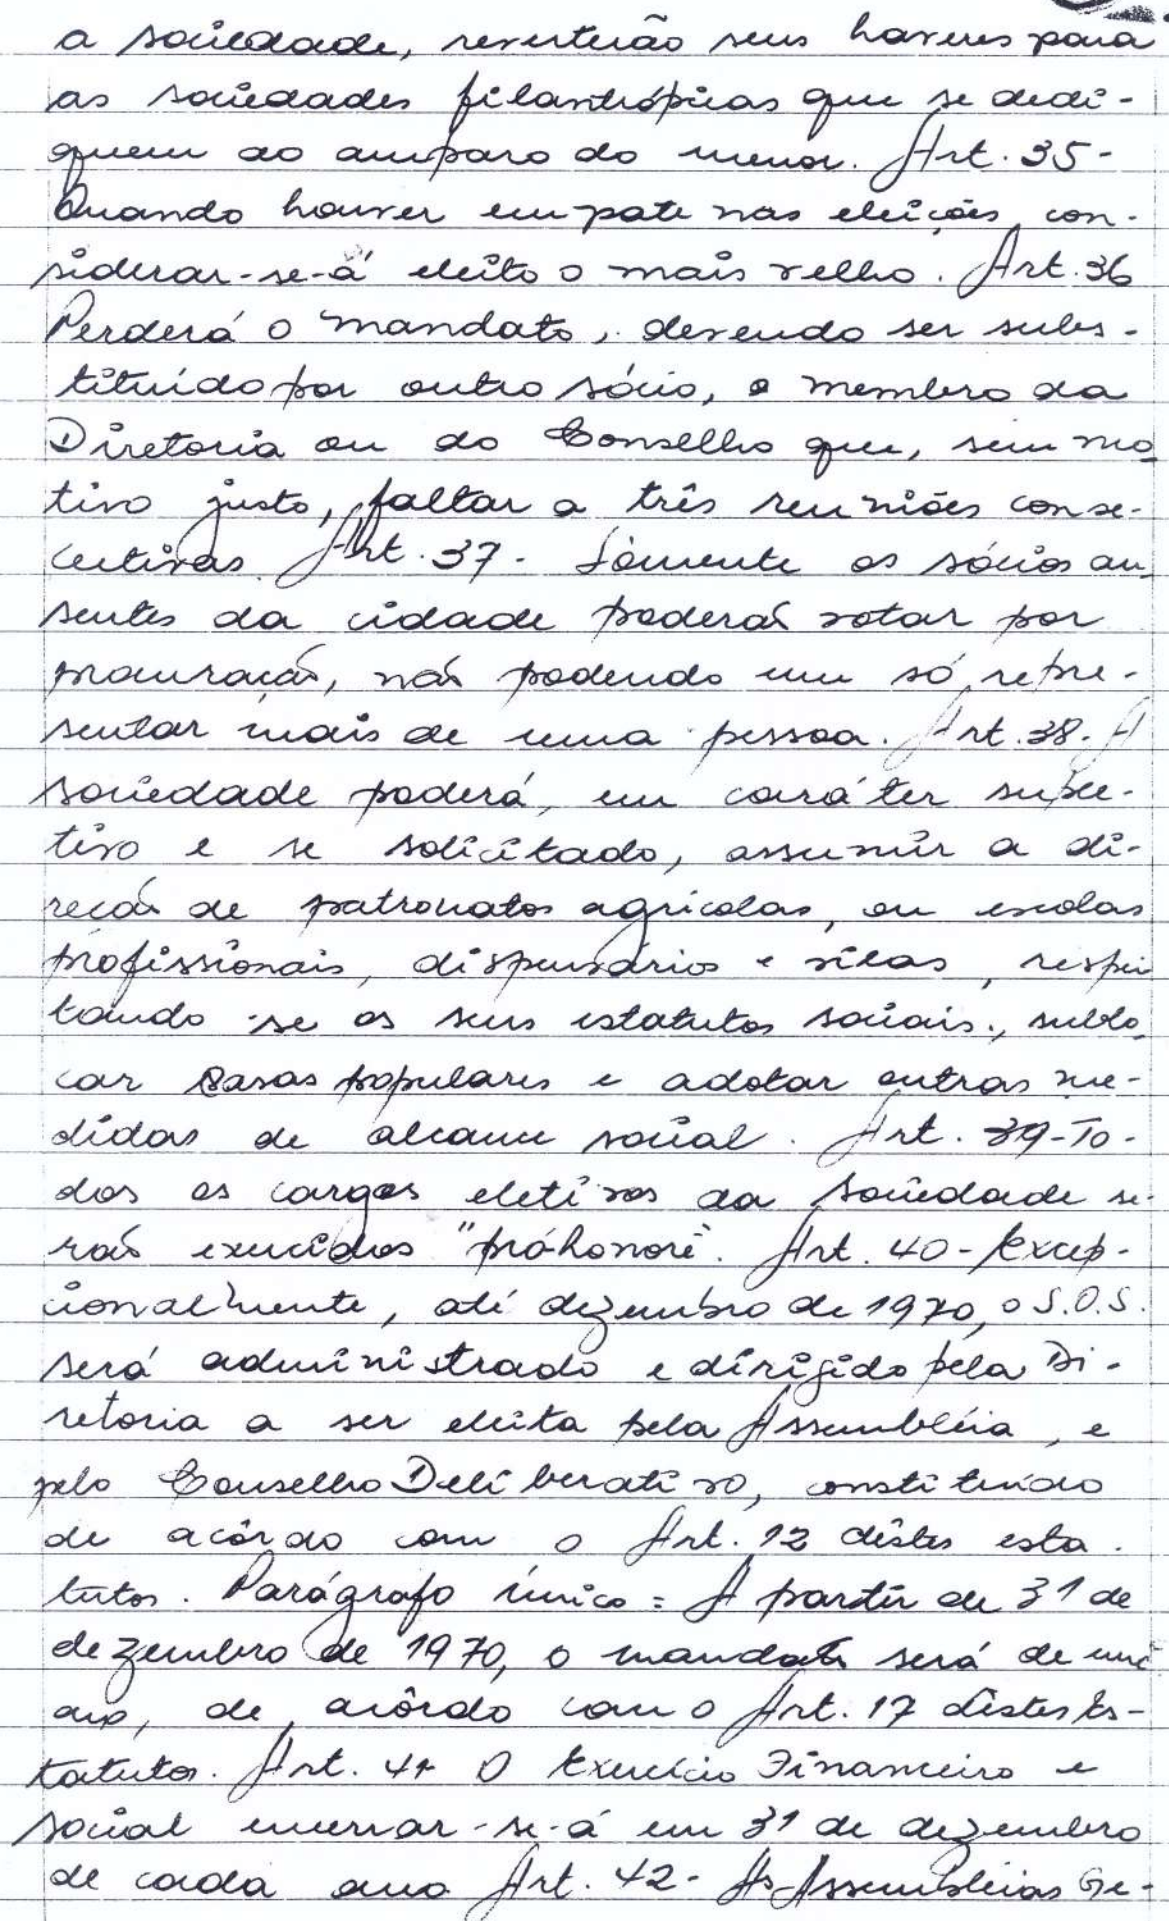 a sociedade, reverterão seus haveres para
as sociedades filantrópicas que se dedi-
quem ao amparo do menor. Art. 35-
Quando houver empate nas eleições, con-
siderar-se-á eleito o mais velho. Art. 36
Perderá o mandato, devendo ser subs-
tituído por outro sócio, o membro da
Diretoria ou do Conselho que, sem mo-
tivo justo, faltar a três reuniões conse-
cutivas. Art. 37- Sòmente os sócios au-
sentes da cidade poderão votar por
procuração, não podendo um só repre-
sentar mais de uma pessoa. Art. 38- A
sociedade poderá, em caráter suple-
tivo e se solicitado, assumir a di-
reção de patronatos agrícolas, ou escolas
profissionais, dispensários e vilas, respei
tando-se os seus estatutos sociais, sublo-
car casas populares e adotar outras me-
didas de alcance social. Art. 39-To-
dos os cargos eletivos da sociedade se-
rão exercidos "próhonore". Art. 40- Excep-
cionalmente, até dezembro de 1970, o S.O.S.
será administrado e dirigido pela Di-
retoria a ser eleita pela Assembléia, e
pelo Conselho Deliberativo, constituído
de acôrdo com o Art. 12 dêstes esta-
tutos. Parágrafo único = A partir de 31 de
dezembro de 1970, o mandato será de um
ano, de acôrdo com o Art. 17 dêstes Es-
tatutos. Art. 41 O Exercício Financeiro e
social encerrar-se-á em 31 de dezembro
de cada ano Art. 42- As Assembléias Ge-